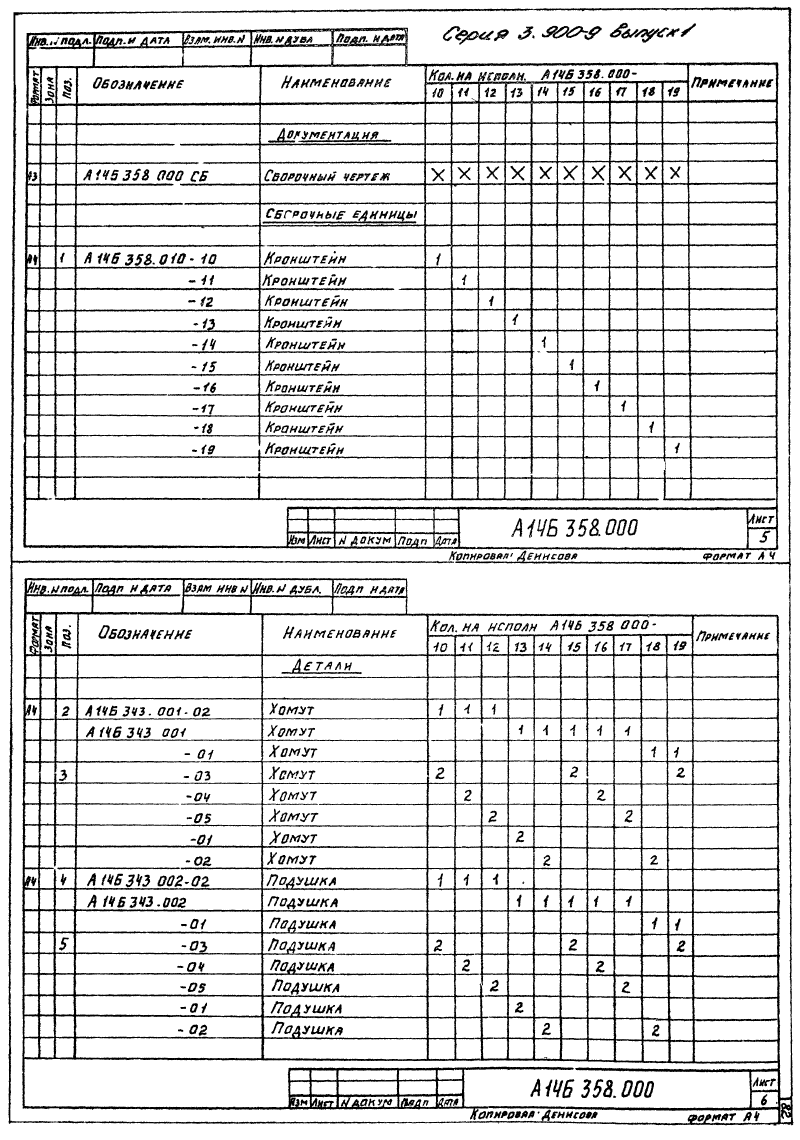 Серия 3.900-9 Выпуск 1
Инв. № подл. Подп. и дата Взам. инв. № Инв. № дубл Подп. и дата
Формат Зона Поз. Обозначение Наименование Кол. на исполн. А14Б 358.000- Примечание
10 11 12 13 14 15 16 17 18 19
Документация
А3 А14Б 358 000 СБ Сборочный чертеж X X X X X X X X X X
Сборочные единицы
А4 1 А14Б 358.010-10 Кронштейн 1
-11 Кронштейн 1
-12 Кронштейн 1
-13 Кронштейн 1
-14 Кронштейн 1
-15 Кронштейн 1
-16 Кронштейн 1
-17 Кронштейн 1
-18 Кронштейн 1
-19 Кронштейн 1
Изм Лист № докум Подп Дата А14Б 358.000 Лист 5
Копировал: Денисова Формат А4
Инв. № подл. Подп и дата Взам инв № Инв. № дубл. Подп и дата
Формат Зона Поз. Обозначение Наименование Кол. на исполн А14Б 358 000- Примечание
10 11 12 13 14 15 16 17 18 19
Детали
А4 2 А14Б 343.001-02 Хомут 1 1 1
А14Б 343 001 Хомут 1 1 1 1 1
-01 Хомут 1 1
3 -03 Хомут 2 2 2
-04 Хомут 2 2
-05 Хомут 2 2
-01 Хомут 2
-02 Хомут 2 2
А4 4 А14Б 343 002-02 Подушка 1 1 1
А14Б 343.002 Подушка 1 1 1 1 1
-01 Подушка 1 1
5 -03 Подушка 2 2 2
-04 Подушка 2 2
-05 Подушка 2 2
-01 Подушка 2
-02 Подушка 2 2
Изм Лист № докум Подп Дата А14Б 358.000 Лист 6
Копировал: Денисова Формат А4
82